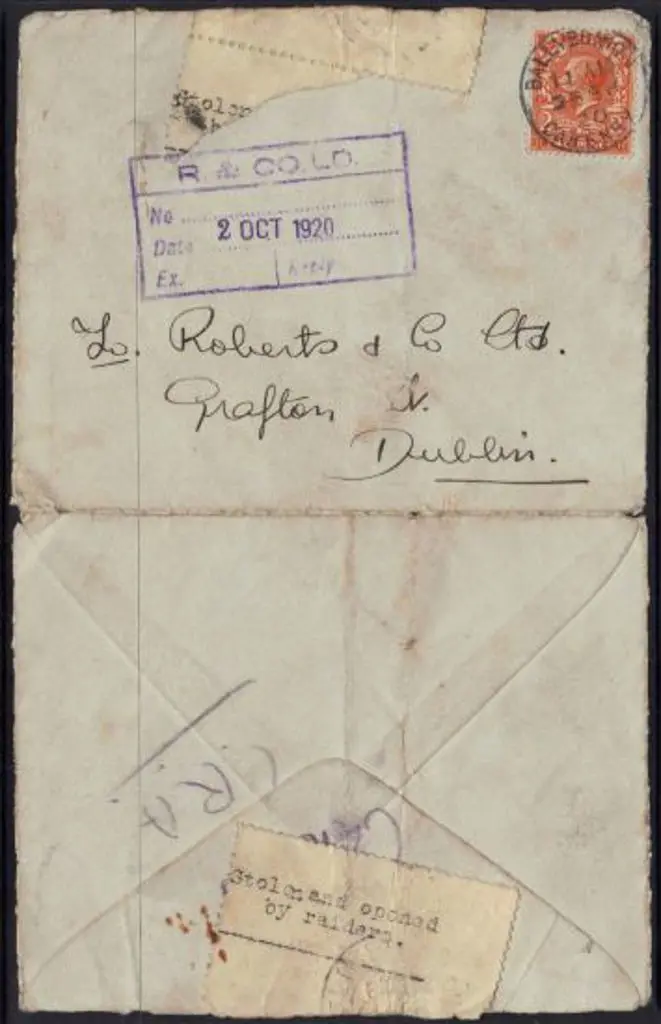 Stolen
R & CO. LD.
No
Date 2 OCT 1920
Ex. Reply
To. Roberts & Co Ltd.
Grafton St.
Dublin.
Stolen and opened
by raiders.